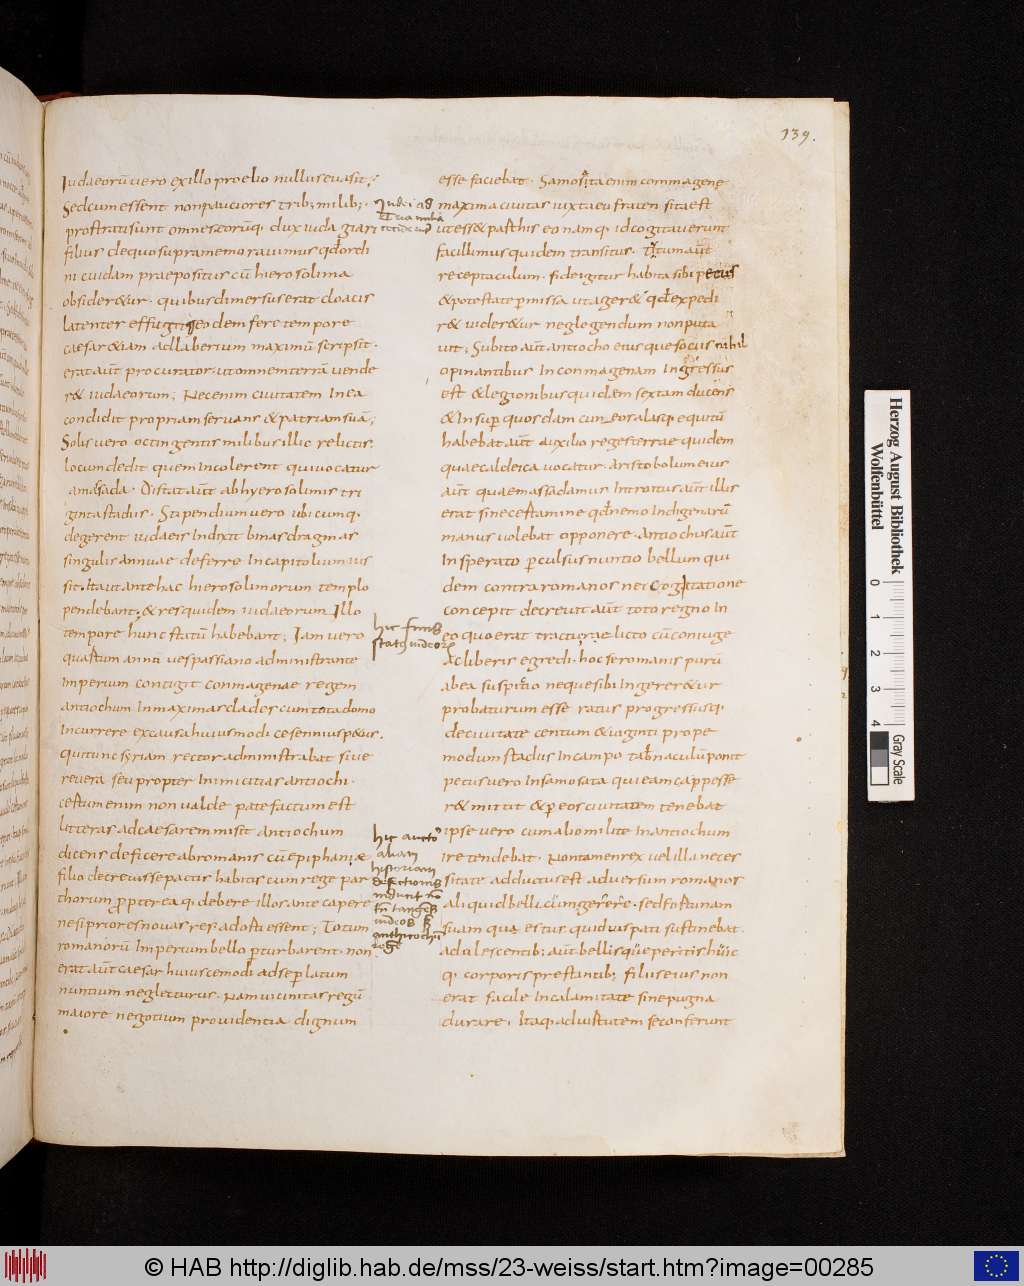 139.
Iudaeorū vero ex illo proelio nullus evasit;
Sed cum essent non pauciores trib; milib;
prostrati sunt omnes eorūq. dux iuda giari
filius de quo supra memoravimus qđ ordi
ni cuidam praepositus cū hierosolima
obsideretur. quibusdimersus erat cloacis
latenter effugit; eodem fere tempore
caesar etiam ad laberium maximū scripsit.
erat aūt procurator. ut omnem terrā vende
r& iudaeorum; Necenim civitatem In ea
condidit propriam servans & patriam suā;
Solis vero octingentis milibus illic relictis.
locum dedit quem incolerent qui vocatur
amasada. Distat aūt ab hyerosolimis tri
ginta stadiis. Stipendium vero ubicumq.
degerent iudaeis Indixit binas dragmas
singulis annuae deferre In capitolium ius
sit. Ita ut ante hac hierosolimorum templo
pendebant. & res quidem iudaeorum Illo
tempore hunc statū habebant; Iam vero
quartum annū vespassiano administrante
Imperium contigit conmagenae regem
antiochum In maximas clades cum tota domo
Incurrere ex causa huiusmodi cesennius p&us.
qui tunc syriam rector administrabat sive
revera seu propter Inimicitias antiochi.
certum enim non valde patefactum est
litteras ad caesarem misit antiochum
dicens deficere a bromanis cū epiphaniae
filio decrevisse pactis habitis cum rege par
thorum propterea q. debere illos ante capere
ne si priores novas res adorti essent; Totum
romanorū Imperium bello perturbarent. non
erat aūt caesar huiuscemodi ad se perlatum
nuntium neglecturus. Nam vicinitas regū
maiore negotium providentia dignum
Iudei ad
hic finis
status iudeorȝ
hic aucto
aliam
historiam
defectionis
inducit nō
tn̄ tangens
iudeos sȝ
anthiochū
rege
esse faciebat. Samosita enim commagene
maxima civitas iuxta eufraten sita est
ut esset parthis eo namq. id cogitaverunt
facillimus quidem transitus. Tutum aūt
receptaculum. fide igitur habita sibi petus
& potestate permissa ut ager& qđ expedi
r& videretur neglegendum non puta
vit; Subito aūt antiocho eiusque sociis nihil
opinantibus In conmagenam Ingressus
est & legionibus quidem sextam ducens
& Insuper quosdam cum eo ralasq equitū
habebat aūt auxilio reges terrae quidem
quae caldeica vocatur. aristobolum eius
aūt quae massadamus Introitus aūt illis
erat sine certamine qđ nemo Indigenarū
manus volebat opponere. Antiochus aūt
Insperato perculsus nuntio bellum qui
dem contra romanos nec cogitatione
concepit decrevit aūt toto regno In
eo quo erat tracturae licto cū coniuge
ac liberis egredi. hoc se romanis purū
ab ea suspitio neque sibi Ingereretur
probaturum esse ratus progressusq.
de civitate centum & viginti prope
modum stadiis In campo tabnaculū ponit
petus vero In samosata qui eam cap posse
r& mittit & p eos civitatem tenebat
ipse vero cum alio milite In antiochum
Ire tendebat. Non tamen rex vel illa neces
sitate adductus est adversum romanos
aliquid belli cū ingerere. sed fortunam
suam quae estus quid vis pati sustinebat.
adulescentib; aūt bellisque peritis huic
q. corporis prestantib; filiis eius non
erat facile In calamitate sine pugna
durare. Itaq. ad virtutem se conferunt
Herzog August Bibliothek
Wolfenbüttel
0 1 2 3 4
Gray Scale
© HAB http://diglib.hab.de/mss/23-weiss/start.htm?image=00285